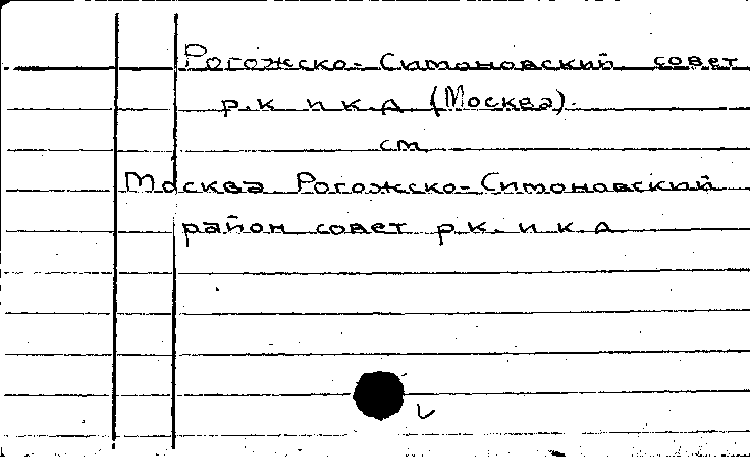 Рогожско-Симоновский совет
р.к. и к.д. (Москва).
см.
Москва. Рогожско-Симоновский
район совет р.к. и к.д.